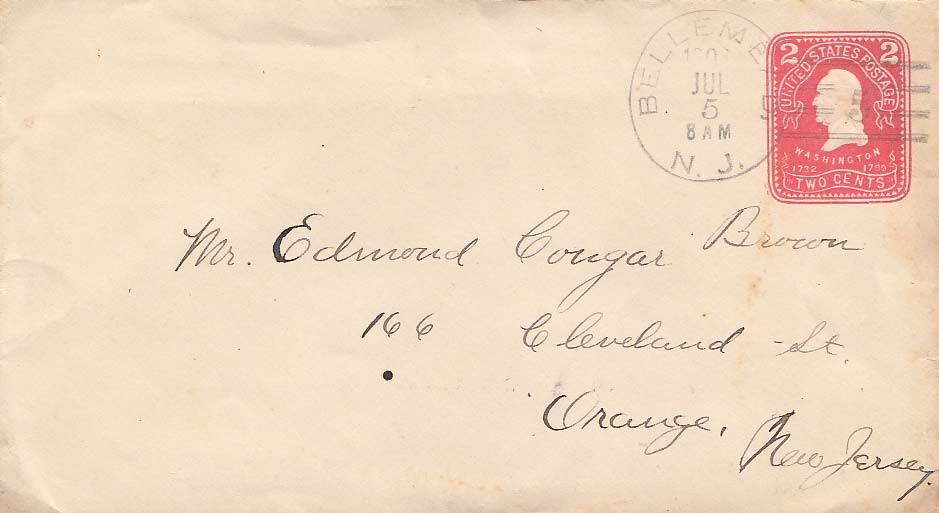 BELLEME
JUL
5
8 AM
N. J.
2 2
UNITED STATES POSTAGE
WASHINGTON
1732 1799
TWO CENTS
Mr. Edmond Congar Brown
166 Cleveland St.
Orange, New Jersey.